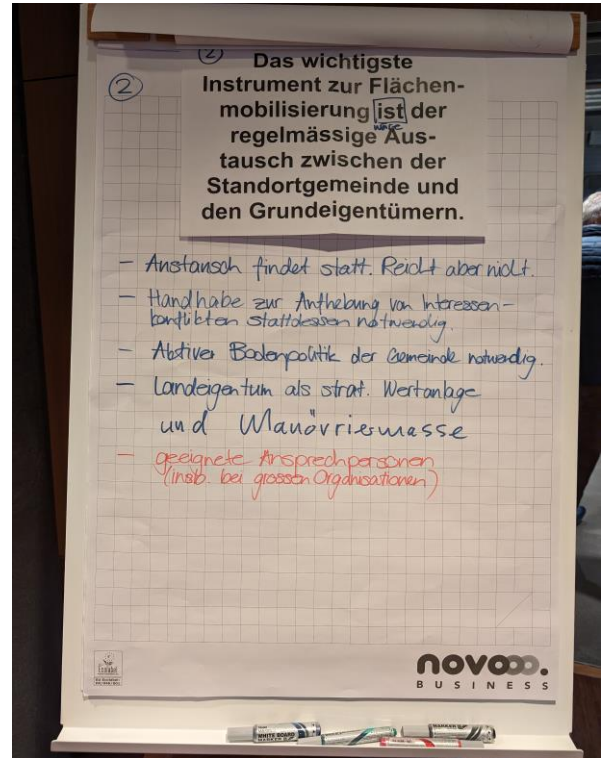 (2)
Das wichtigste
(2)
Instrument zur Flächen-
mobilisierung ist der
wäge
regelmässige Aus-
tausch zwischen der
Standortgemeinde und
den Grundeigentümern.
- Austausch findet statt. Reicht aber nicht.
- Handhabe zur Aufhebung von Interessen-
konflikten stattdessen notwendig.
- Aktiver Bodenpolitik der Gemeinde notwendig.
- Landeigentum als strat. Wertanlage
und Manövriermasse
- geeignete Ansprechpersonen
(insb. bei grossen Organisationen)
novooo.
BUSINESS
WHITE BOARD
MARKER